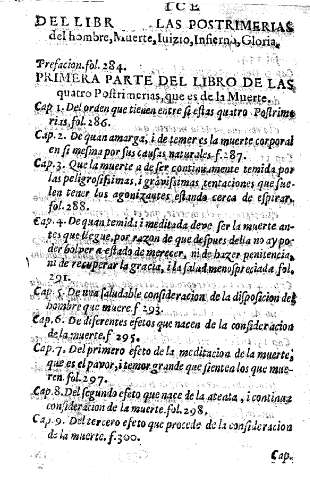 ICE
DEL LIBR LAS POSTRIMERIAS
del hombre, Muerte, Iuizio, Infierno, Gloria.
Prefacion. fol. 284.
PRIMERA PARTE DEL LIBRO DE LAS
quatro Postrimerias, que es de la Muerte.
Cap. 1. Del orden que tienen entre si estas quatro Postrime
rias. fol. 286.
Cap. 2. De quan amarga, i de temer es la muerte corporal
en si mesma por sus causas naturales. f. 287.
Cap. 3. Que la muerte a de ser continuamente temida por
las peligrosissimas, i gravissimas tentaciones que sue
len tener los agonizantes estando cerca de espirar.
fol. 288.
Cap. 4. De quan temida i meditada deve ser la muerte an
tes que llegue, por razon de que despues della no ay po
der bolver a estado de merecer, ni de hazer penitencia,
ni de recuperar la gracia, i la salud menospreciada. fol.
291.
Cap. 5. De una saludable consideracion de la disposicion del
hombre que muere. f 293.
Cap. 6. De diferentes efetos que nacen de la consideracion
de la muerte. f 295.
Cap. 7. Del primero efeto de la meditacion de la muerte,
que es el pavor, i temor grande que sienten los que mue-
ren. fol. 297.
Cap. 8. Del segundo efeto que nace de la atenta, i continua
consideracion de la muerte. fol. 298.
Cap. 9. Del tercero efeto que procede de la consideracion
de la muerte. f. 300.
Cap.